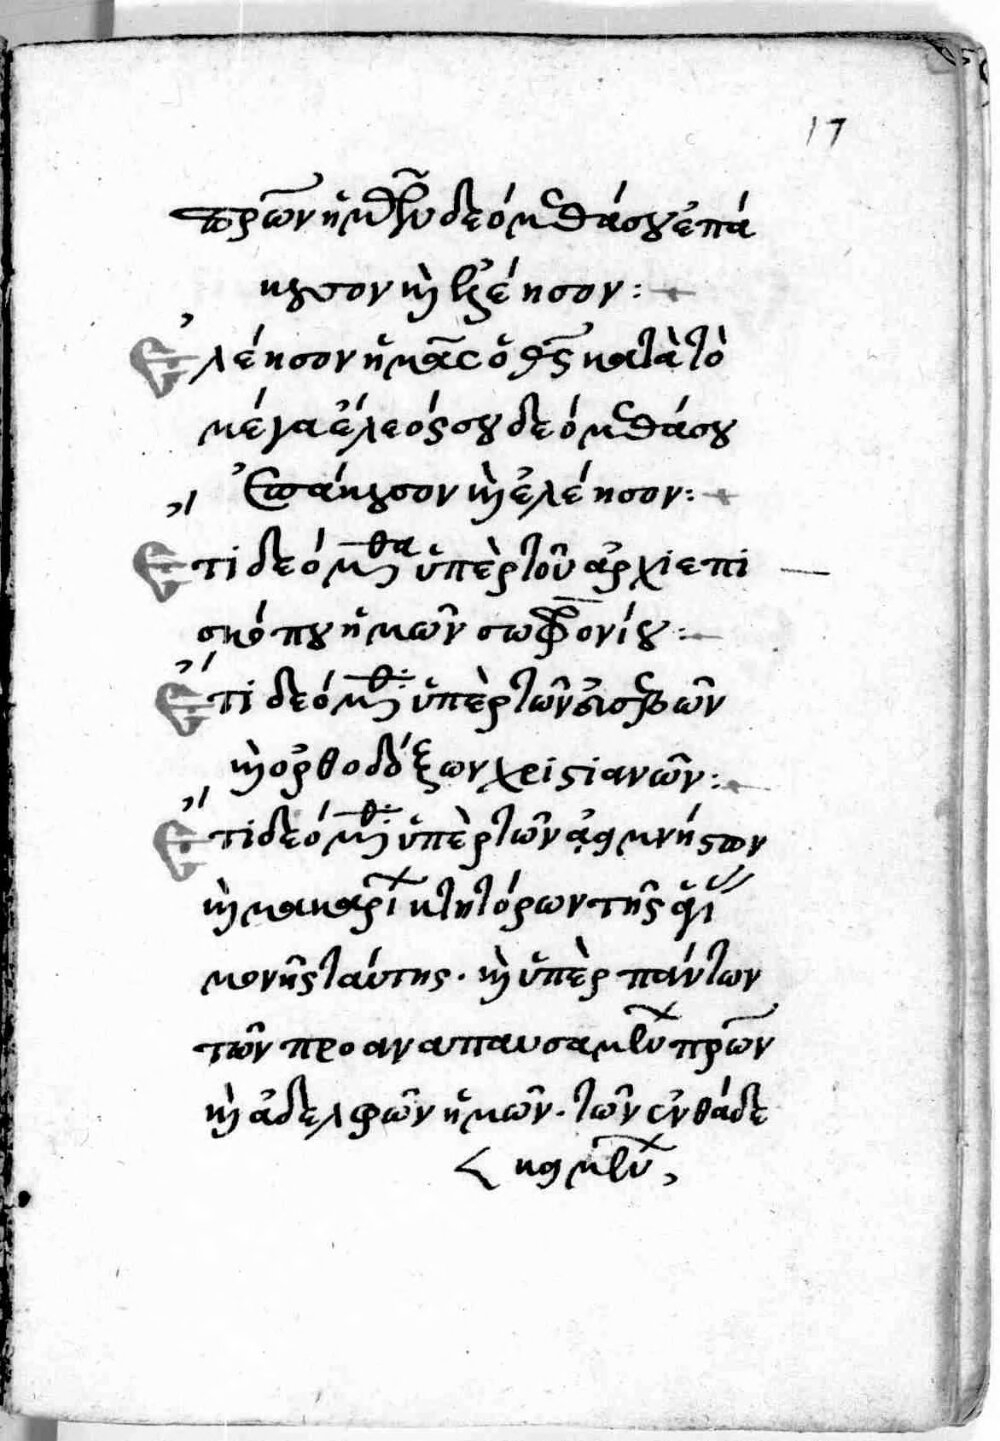 17
πρων ἡμῶν δεόμεθά σου ἐπά
κουσον καὶ ἐλέησον:
Ἐλέησον ἡμᾶς ὁ θς κατὰ τὸ
μέγα ἔλεός σου δεόμεθά σου
ἐπάκουσον καὶ ἐλέησον:
Ἔτι δεόμεθα ὑπὲρ τοῦ ἀρχιεπι
σκόπου ἡμῶν σωφρονίου:
Ἔτι δεόμεθα ὑπὲρ τῶν εὐσεβῶν
καὶ ὀρθοδόξων χριστιανῶν:
Ἔτι δεόμεθα ὑπὲρ τῶν ἀειμνήστων
καὶ μακαρίων κτητόρων τῆς ἁγίας
μονῆς ταύτης. καὶ ὑπὲρ πάντων
τῶν προαναπαυσαμένων πρων
καὶ ἀδελφῶν ἡμῶν. τῶν ἐνθάδε
κειμένων,